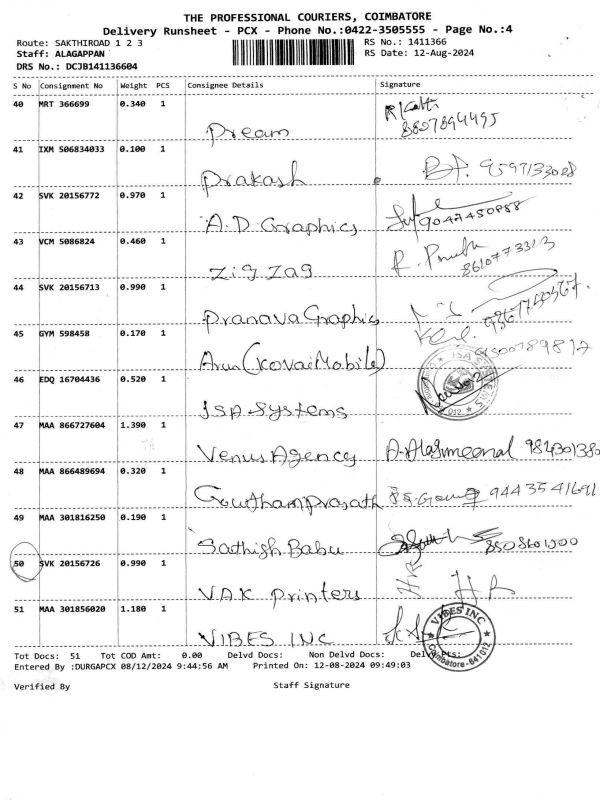 THE PROFESSIONAL COURIERS, COIMBATORE
Delivery Runsheet - PCX - Phone No.:0422-3505555 - Page No.:4
Route: SAKTHIROAD 1 2 3 RS No.: 1411366
Staff: ALAGAPPAN RS Date: 12-Aug-2024
DRS No.: DCJB141136604
S No Consignment No Weight PCS Consignee Details Signature
40 MRT 366699 0.340 1
Dream 8807894495
41 IXM 506834033 0.100 1
Prakash 9597133088
42 SVK 20156772 0.970 1
A.D. Graphics 9047450888
43 VCM 5086824 0.460 1
Zig Zag 8610773313
44 SVK 20156713 0.990 1
Pranava Graphics
45 GYM 598458 0.170 1
Arun (Kovai Mobile)
46 EDQ 16704436 0.520 1
JSA Systems
47 MAA 866727604 1.390 1
Venus Agency A. Alagumeenal 984301380
48 MAA 866489694 0.320 1
Gowtham Prasath 9443541691
49 MAA 301816250 0.190 1
Sathish Babu 8508601500
50 SVK 20156726 0.990 1
VAK Printers
51 MAA 301856020 1.180 1
VIBES INC
VIBES INC
Coimbatore-641012
Tot Docs: 51 Tot COD Amt: 0.00 Delvd Docs: Non Delvd Docs: Delv Pts:
Entered By :DURGAPCX 08/12/2024 9:44:56 AM Printed On: 12-08-2024 09:49:03
Verified By Staff Signature